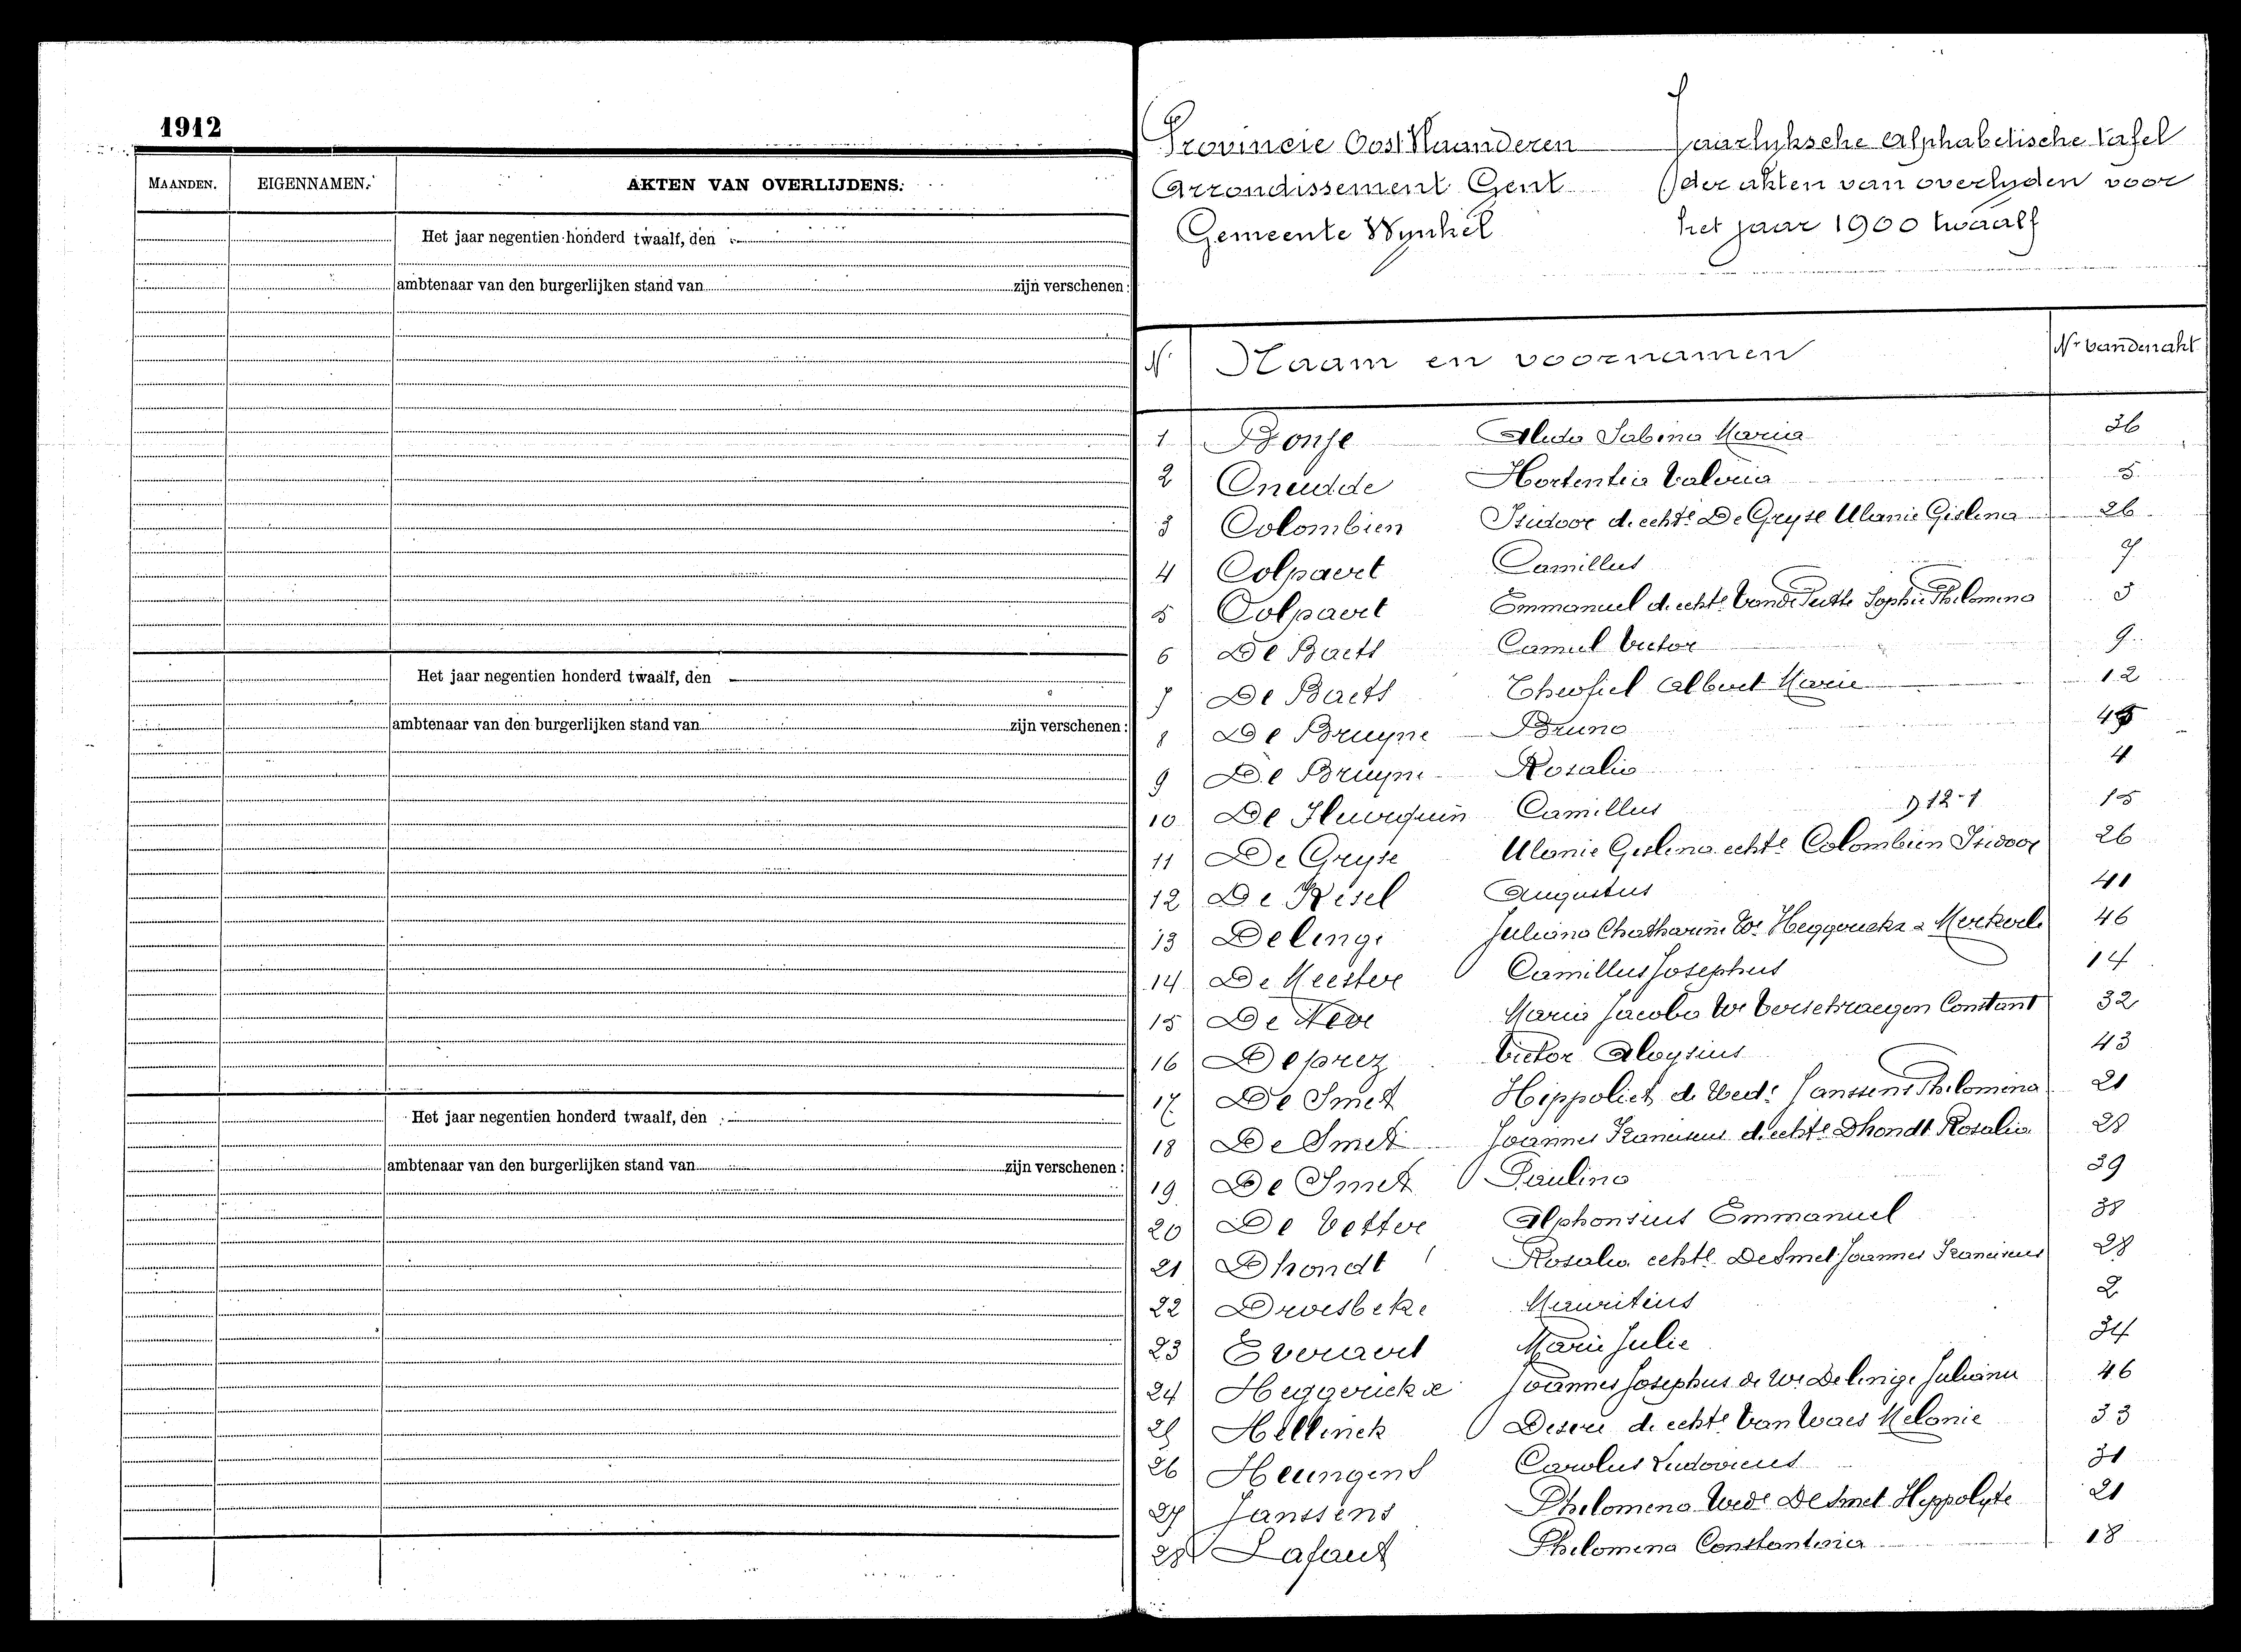 1912
MAANDEN. EIGENNAMEN. AKTEN VAN OVERLIJDENS.
Het jaar negentien honderd twaalf, den
ambtenaar van den burgerlijken stand van zijn verschenen:
Het jaar negentien honderd twaalf, den
ambtenaar van den burgerlijken stand van zijn verschenen:
Het jaar negentien honderd twaalf, den
ambtenaar van den burgerlijken stand van zijn verschenen:
Provincie Oost Vlaanderen Jaarlyksche alphabetische tafel
Arrondissement Gent der akten van overlyden voor
Gemeente Wynkel het jaar 1900 twaalf
N. Naam en voornamen Nr van den akt
1 Bonje Sabina Maria 36
2 Cneudde Hortentia Valeria 5
3 Colombien Isidoor d. echte De Gryse Ulanie Gislena 26
4 Colpaert Camillus 7
5 Colpaert Emmanuel d. echte Vande Putte Sophie Philomena 3
6 De Baets Camiel Victor 9
7 De Baets Theofiel Albert Marie 12
8 De Bruyne Bruno
9 De Bruyne Rosalia 4
10 De Camillus 12-1 15
11 De Gryse Ulanie Gislena echte Colombien Isidoor 26
12 De Kesel Augustus 41
13 Delenge Juliana Chatharina We Heggerickx 46
14 De Meester Camillus Josephus 14
15 De Neve Maria Jacoba We Verschraegen Constant 32
16 Deprez Victor Aloysius 43
17 De Smet Hippoliet d. Wede Janssens Philomena 21
18 De Smet Joannes Franciscus d. echte Dhondt Rosalia 28
19 De Smet Paulina 39
20 De Vetter Alphonsius Emmanuel 38
21 Dhondt Rosalia echte De Smet Joannes Franciscus 28
22 Droesbeke Mauritius 2
23 Everaert Marie Julie 34
24 Heggerickx Joannes Josephus d. We Delenge Juliana 46
25 Hellinck Deseré d. echte Van Waes Melanie 33
26 Heungens Carolus Ludovicus 31
27 Janssens Philomena Wede De Smet Hyppolyte 21
28 Lafaut Philomena Constantia 18